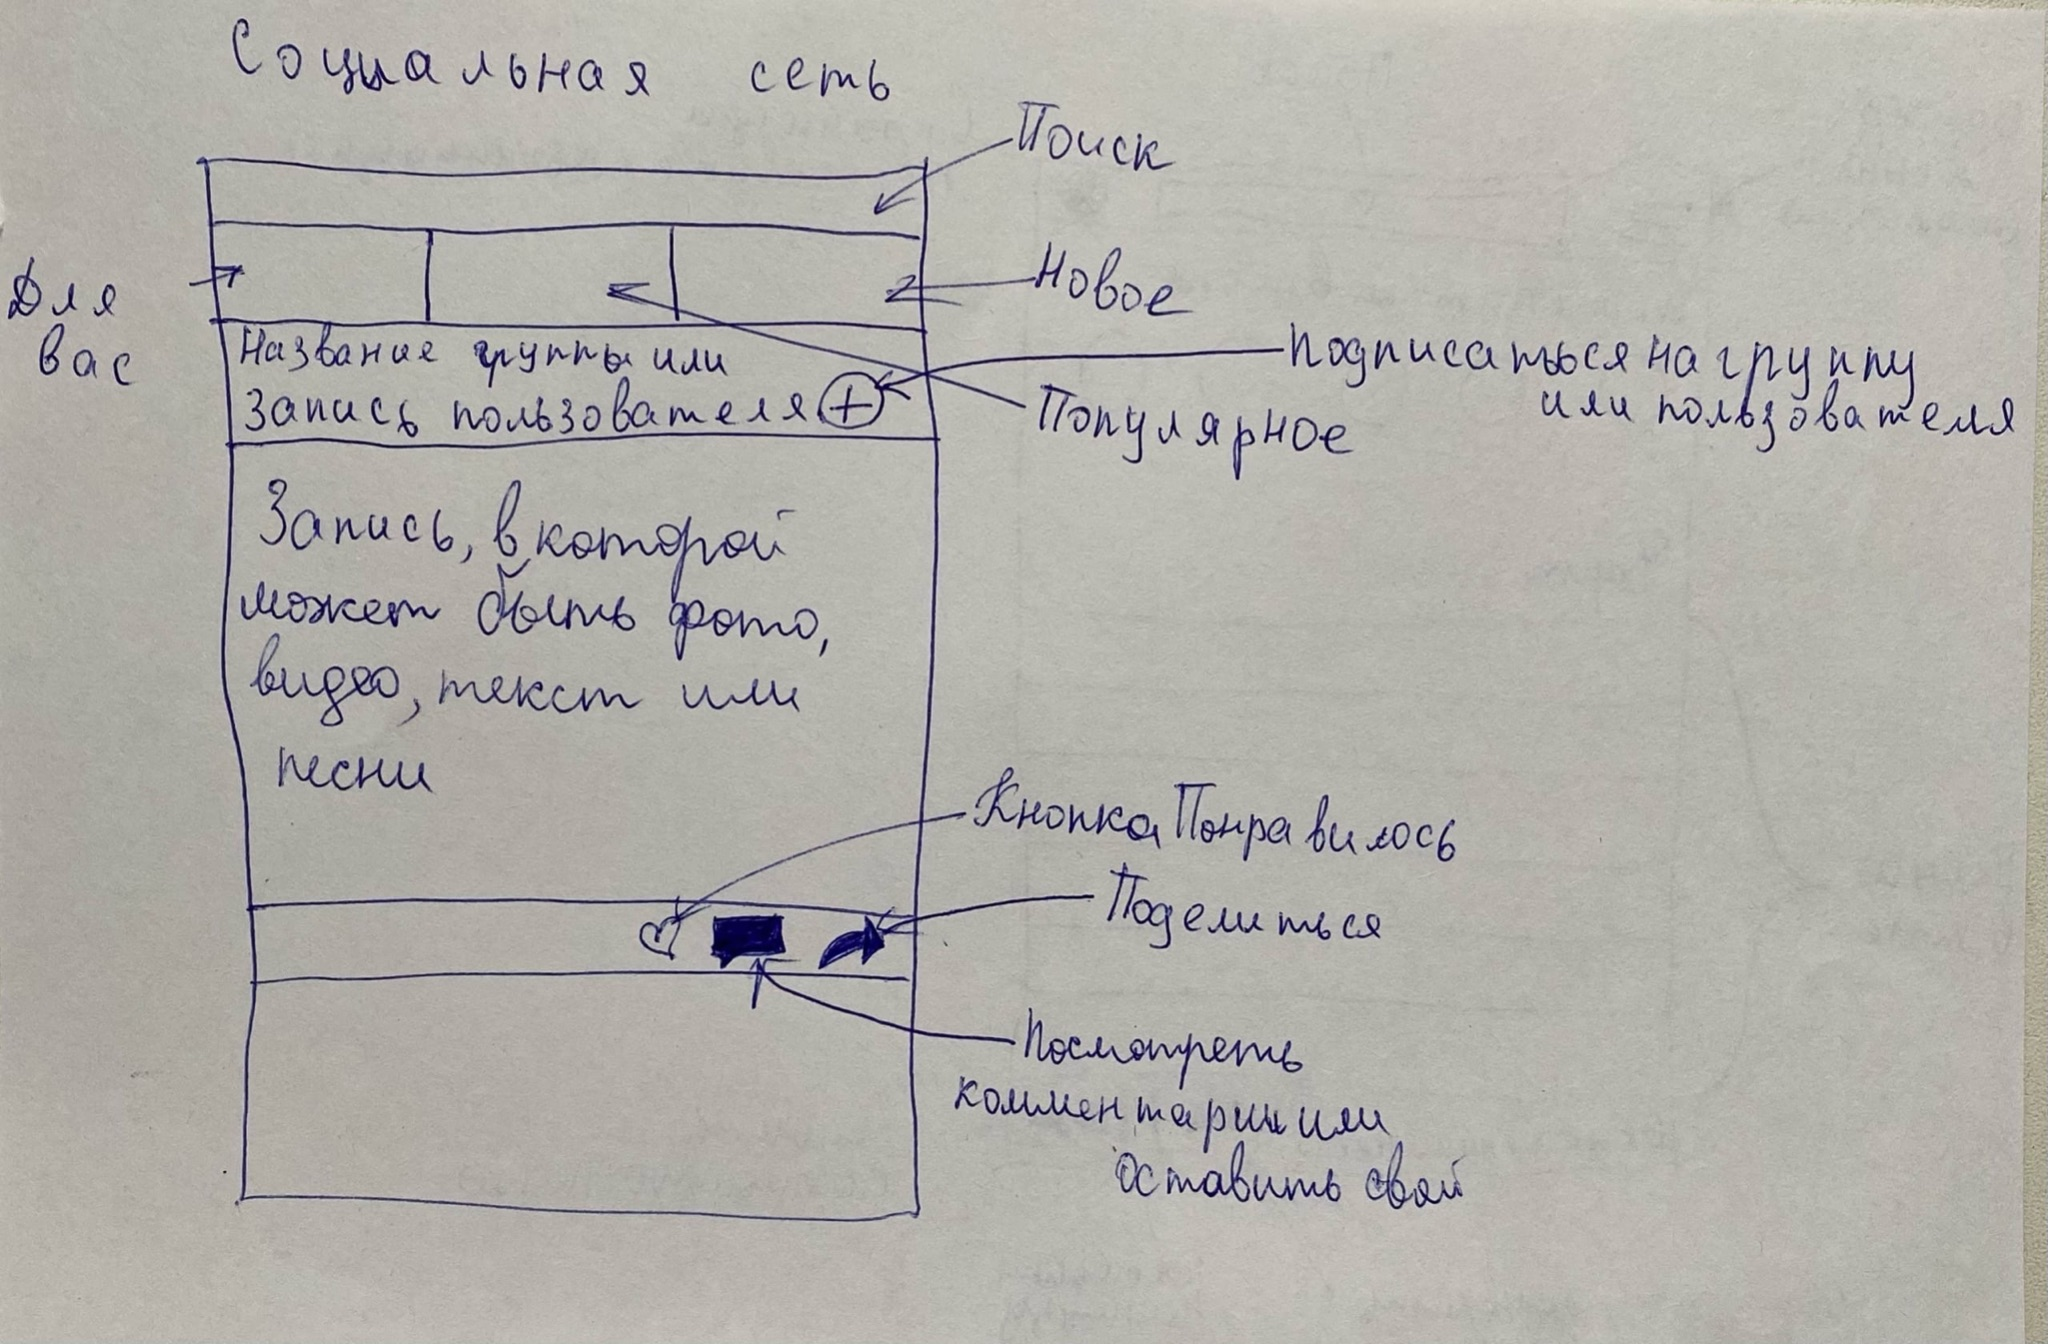 Социальная сеть
Поиск
Для
вас
Новое
Название группы или
запись пользователя
Подписаться на группу
или пользователя
Популярное
Запись, в которой
может быть фото,
видео, текст или
песни
Кнопка Понравилось
Поделиться
Посмотреть
комментарии или
оставить свой